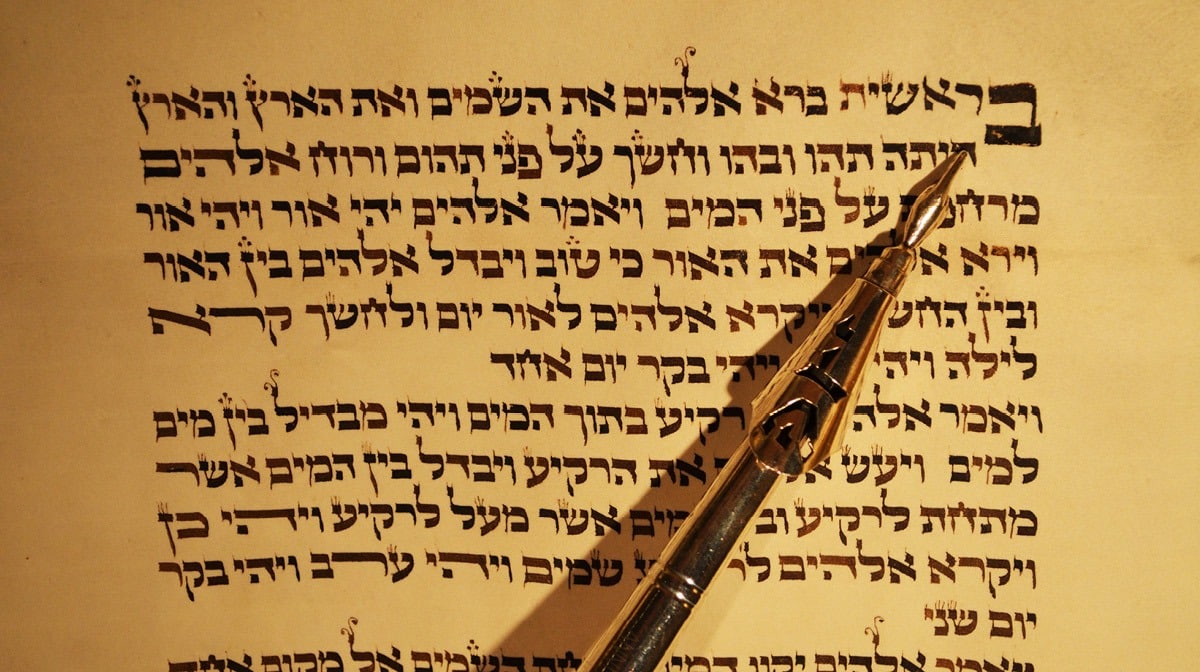 בראשית ברא אלהים את השמים ואת הארץ והארץ
היתה תהו ובהו וחשך על פני תהום ורוח אלהים
על פני המים ויאמר אלהים יהי אור ויהי אור
וירא את האור כי טוב ויבדל אלהים בין האור
ובין ויקרא אלהים לאור יום ולחשך קרא
לילה ויהי ויהי בקר יום אחד
ויאמר רקיע בתוך המים ויהי מבדיל בין מים
למים ויעש את הרקיע ויבדל בין המים אשר
מתחת לרקיע המים אשר מעל לרקיע ויהי כן
ויקרא אלהים שמים ויהי ערב ויהי בקר
יום שני
ויאמר אלהים יקוו המים השמים אל מקום אחד